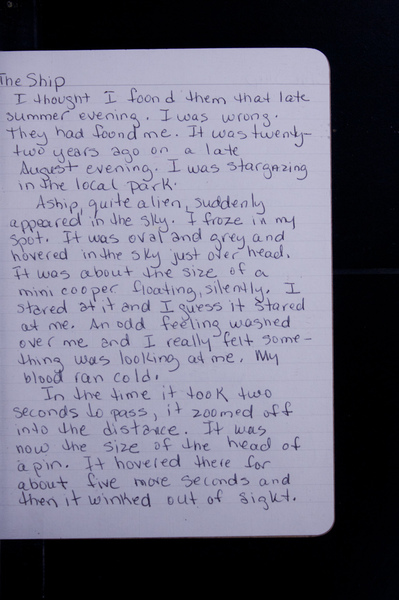 The Ship
I thought I foond them that late
summer evening. I was wrong.
They had foond me. It was twenty-
two years ago on a late
August evening. I was stargazing
in the local park.
A ship, quite alien, suddenly
appeared in the sky. I froze in my
spot. It was oval and grey and
hovered in the sky just over head.
It was about the size of a
mini cooper floating, silently. I
stared at it and I guess it stared
at me. An odd feeling washed
over me and I really felt some-
thing was looking at me. My
blood ran cold.
In the time it took two
seconds to pass, it zoomed off
into the distance. It was
now the size of the head of
a pin. It hovered there for
about five more seconds and
then it winked out of sight.